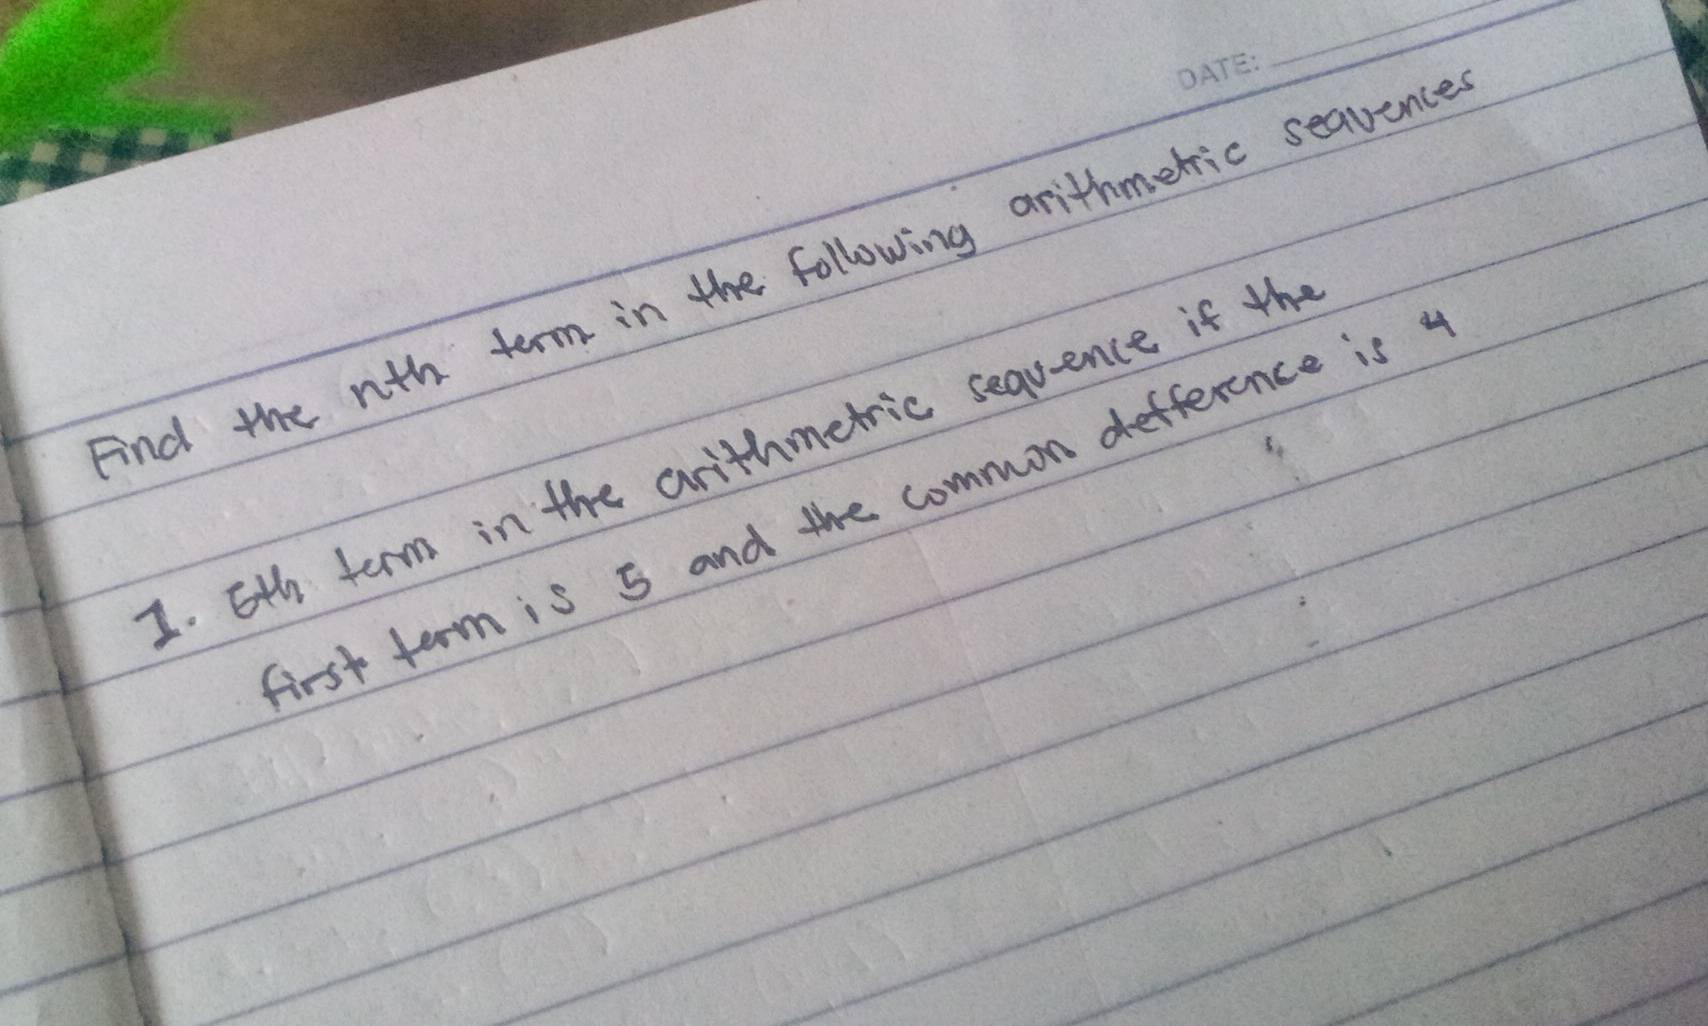 DATE:
Find the nth term in the following arithmetric sequences
1. 6th term in the arithmetric sequence if the
first term is 5 and the common defference is 4